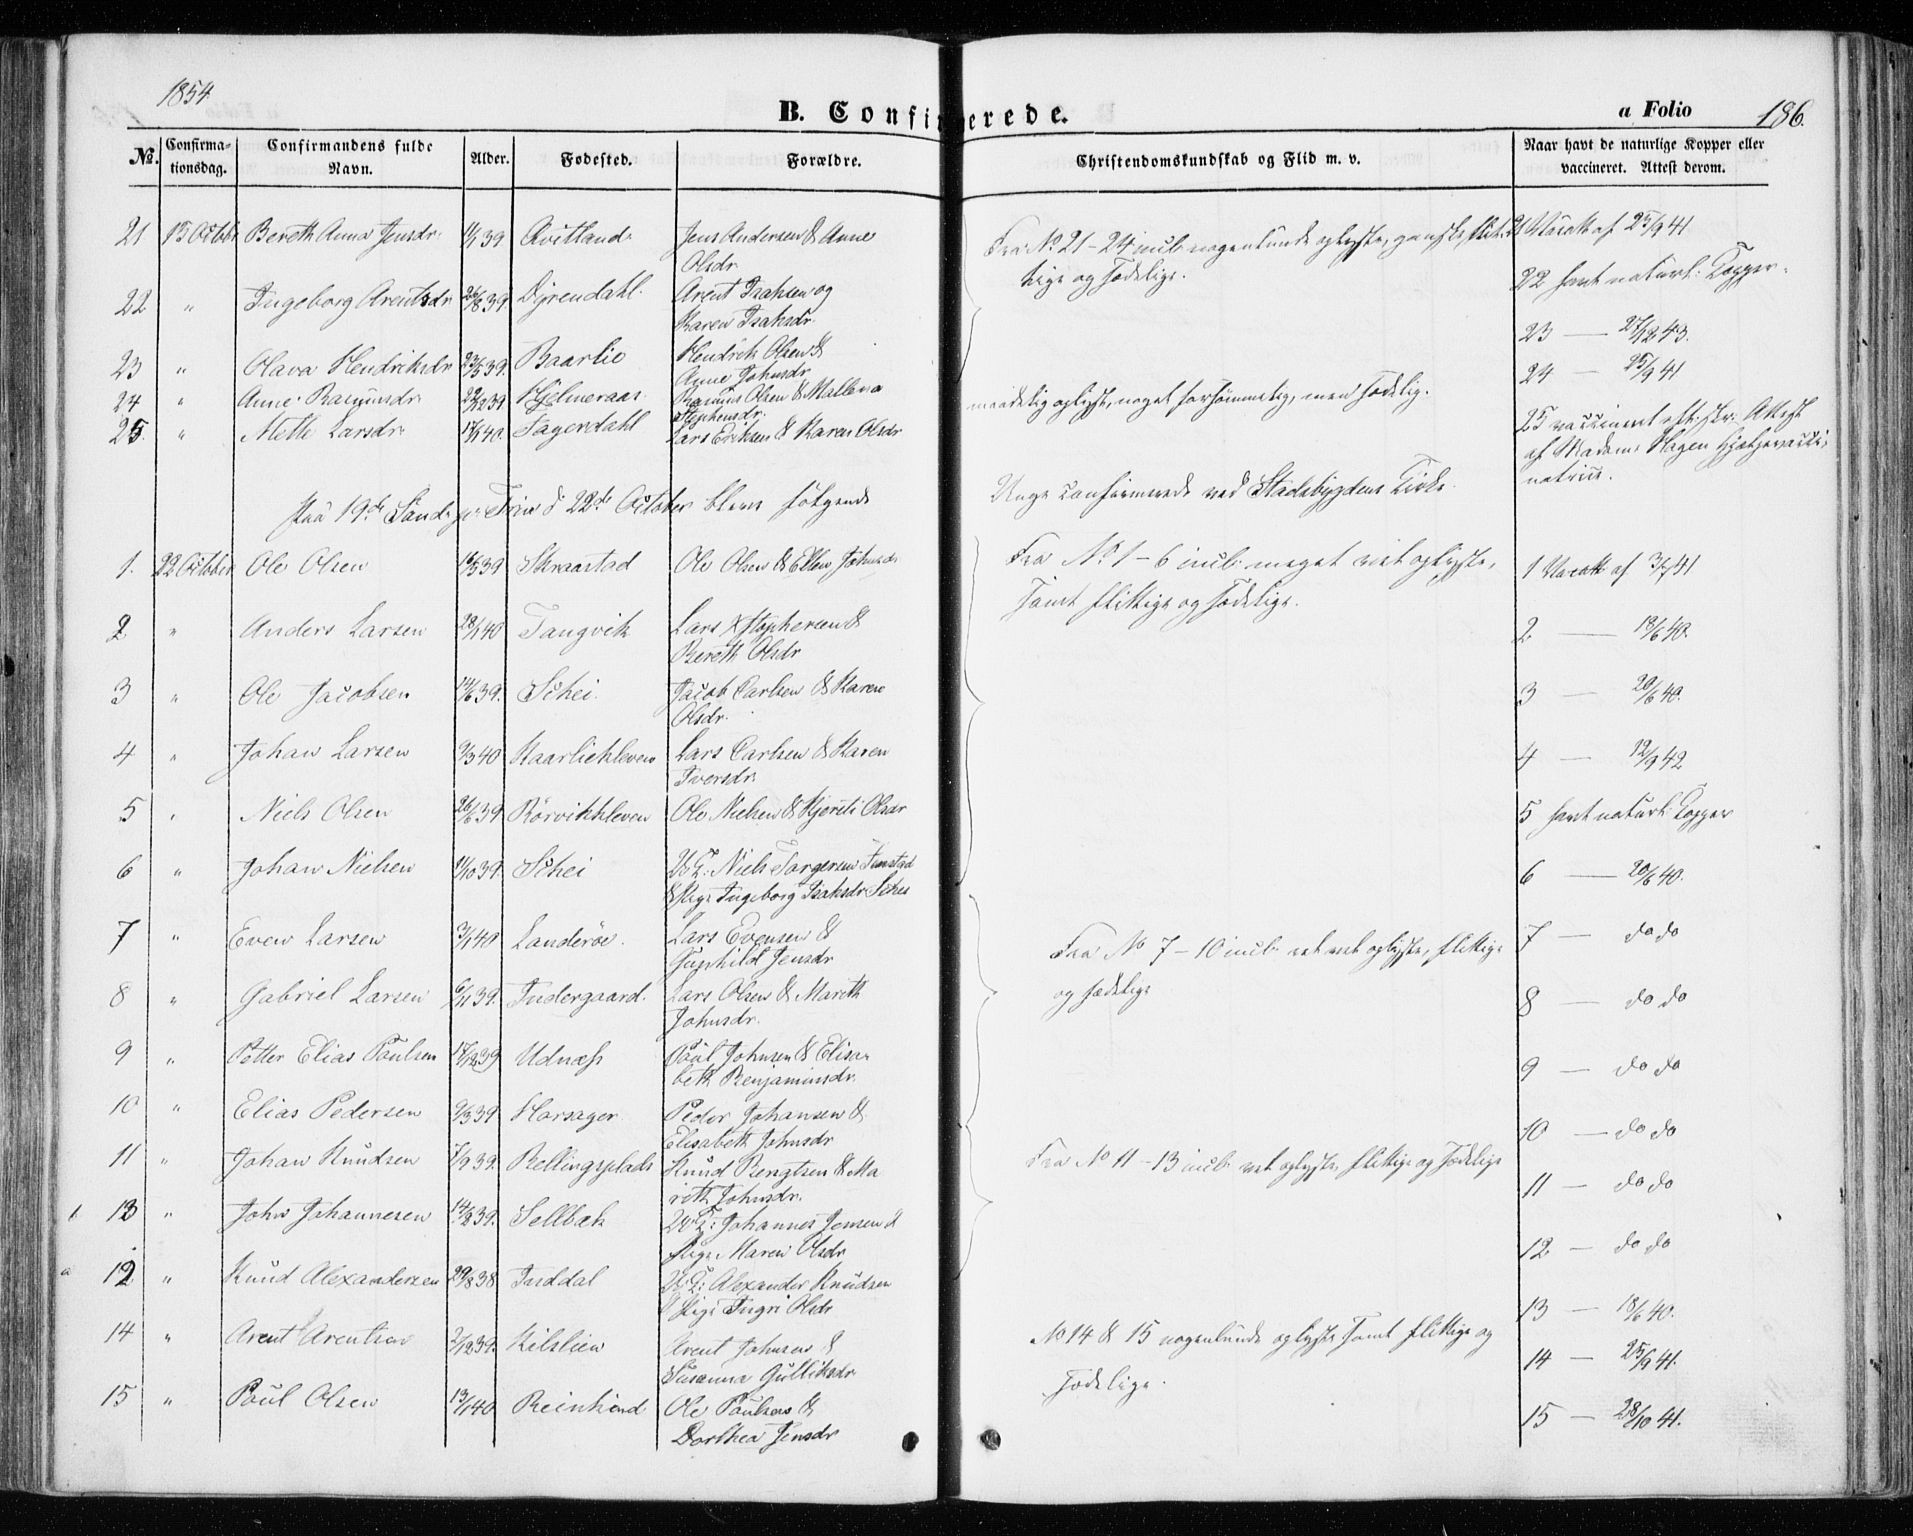 1854
B. Confirmerede.
a Folio 186.
No. Confirmationsdag. Confirmandens fulde Navn. Alder. Fødested. Forældre. Christendomskundskab og Flid m. v. Naar havt de naturlige Kopper eller vaccineret. Attest derom.
21 15 Octbr Bereth Anna Jensdr. 39 Qvitland Jens Andersen & Anne
Olsdr
Fra No 21-24 incl. nogenlunde oplyste, ganske flit-
tige og sædelige.
21 Vaccatt af 25/9 41
22 " Ingeborg Arentsdr 26/8 39. Dyrendahl. Arent Isaksen og
Karen Isaksdr.
22 havt naturl: Kopper.
23 " Olava Hendriksdr 23/5 39. Baarlie Hendrik Olsen &
Anne Johnsdr
23 — 27/12 43.
24 " Anne Rasmusdr. 39 Hjelmeraas Rasmus Olsen & Malena
Stephensdr.
24 — 25/9 41
25. " Mette Larsdr. 17/1 40. Fagerdahl Lars Eriksen & Karen Olsdr
maadelig oplyst, noget forsømmelig, men sædelig.
25 vaccineret eft. skr: Attest
af Madam Hagen
natrice.
Paa 19de Sønd. p. Trin d 22de October bleve følgende
Unge confirmerede ved Stadsbygdens Kirke.
1. 22 October Ole Olsen 16/5 39 Skraastad Ole Olsen & Ellen Johnsdr
Fra No 1-6 incl. meget vel oplyste,
samt flittige og sædelige.
1 Vaccatt af 3/7 41
2 " Anders Larsen 28/1 40 Tangvik Lars Kstophersen &
Bereth Olsdr
2 — 18/6 40.
3 " Ole Jacobsen 14/6 39. Schei. Jacob Carlsen & Karen
Olsdr.
3 — 20/6 40.
4 " Johan Larsen 9/3 40 Haarliekleven Lars Carlsen & Karen
Iversdr.
4 — 12/9 42
5 " Niels Olsen 26/6 39 Rørvikkleven Ole Nielsen & Kjersti Olsdr
5 havt naturl: Kopper
6 " Johan Nielsen 11/10 39. Schei U.K: Niels Torgersen Fenstad
& Pige Ingeborg Isaksdr Schei
6 — 20/6 40.
7 " Even Larsen 3/1 40 Landerøe. Lars Evensen &
Gunhild Jensdr
Fra No 7-10 incl. ret vel oplyste, flittige
og sædelige
7 — do do
8 " Gabriel Larsen 6/11 39. Indergaard. Lars Olsen & Mareth
Johnsdr.
8 — do do
9 " Petter Elias Paulsen 17/12 39 Udnæss Paul Johnsen & Elisa-
beth Benjaminsdr.
9 — do do
10 " Elias Pedersen 9/3 39 Horsager Peder Johansen &
Elisabeth Johnsdr
10 — do do
11 " Johan Knudsen 7/9 39. Rellingsplads Knud Bengtsen & Ma
reth Johnsdr.
Fra No 11-13 incl. vel oplyste flittige og sædelige
11 — do do
13 " John Johannesen 14/8 39. Sellbæk U.K: Johannes Jensen &
Pige Maren Olsdr
12 — do do
12 " Knud Alexandersen 29/8 38 Inddal U.K: Alexander Knudsen
& Pige Ingri Olsdr
13 — 18/6 40.
14 " Arent Arentsen 2/12 39. Kilslien Arent Johnsen &
Susanna Gulliksdr
No 14 & 15 nogenlunde oplyste samt flittige og
sædelige.
14 — 25/9 41.
15 " Paul Olsen 13/1 40 Reinkind Ole Paulsen &
Dorthea Jensdr
15 — 28/10 41.